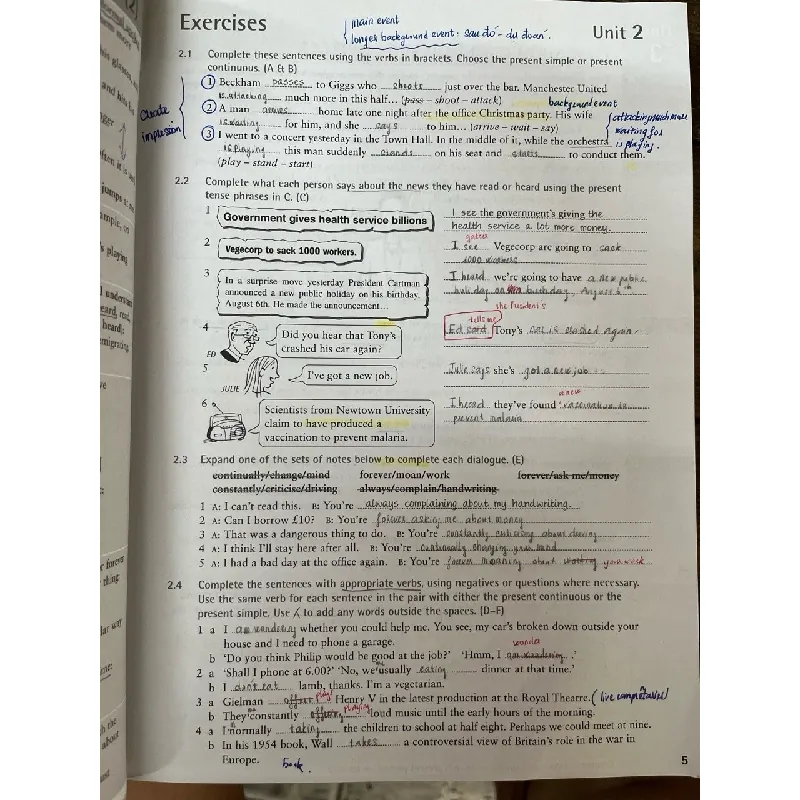 Exercises
main event
longer background event: sau đó - dự đoán.
Unit 2
2.1 Complete these sentences using the verbs in brackets. Choose the present simple or present
continuous. (A & B)
1 Beckham passes to Giggs who shoots just over the bar. Manchester United
is attacking much more in this half… (pass – shoot – attack)
background event
2 A man arrives home late one night after the office Christmas party. His wife
is waiting for him, and she says to him… (arrive – wait – say)
3 I went to a concert yesterday in the Town Hall. In the middle of it, while the orchestra
is playing this man suddenly stands on his seat and starts to conduct them.
(play – stand – start)
Create
impression
attacking much more
waiting for
is playing.
2.2 Complete what each person says about the news they have read or heard using the present
tense phrases in C. (C)
1 Government gives health service billions
I see the government's giving the
health service a lot more money.
2 Vegecorp to sack 1000 workers.
I see Vegecorp are going to sack
1000 workers
3 In a surprise move yesterday President Cartman
announced a new public holiday on his birthday,
August 6th. He made the announcement…
I heard we're going to have a new public
holiday on birthday, August 6th
the President's
4 Did you hear that Tony's
crashed his car again?
ED
tells me
Ed Tony's car is crashed again.
5 I've got a new job.
JULIE
Julie says she's got a new job
6 Scientists from Newtown University
claim to have produced a
vaccination to prevent malaria.
I heard they've found vaccination to
prevent malaria
2.3 Expand one of the sets of notes below to complete each dialogue. (E)
continually/change/mind forever/moan/work forever/ask me/money
constantly/criticise/driving always/complain/handwriting
1 A: I can't read this. B: You're always complaining about my handwriting.
2 A: Can I borrow £10? B: You're forever asking me about money
3 A: That was a dangerous thing to do. B: You're constantly criticising about driving
4 A: I think I'll stay here after all. B: You're continually changing your mind
5 A: I had a bad day at the office again. B: You're forever moaning about working your work
2.4 Complete the sentences with appropriate verbs, using negatives or questions where necessary.
Use the same verb for each sentence in the pair with either the present continuous or the
present simple. Use ⁁ to add any words outside the spaces. (D–F)
1 a I am wondering whether you could help me. You see, my car's broken down outside your
house and I need to phone a garage.
wonder
b 'Do you think Philip would be good at the job?' 'Hmm, I am wondering .'
2 a 'Shall I phone at 6.00?' 'No, we usually eating dinner at that time.'
b I don't eat lamb, thanks. I'm a vegetarian.
3 a Gielman Henry V in the latest production at the Royal Theatre.
b They constantly playing loud music until the early hours of the morning.
4 a I normally taking the children to school at half eight. Perhaps we could meet at nine.
b In his 1954 book, Wall takes a controversial view of Britain's role in the war in
Europe.
book.
5